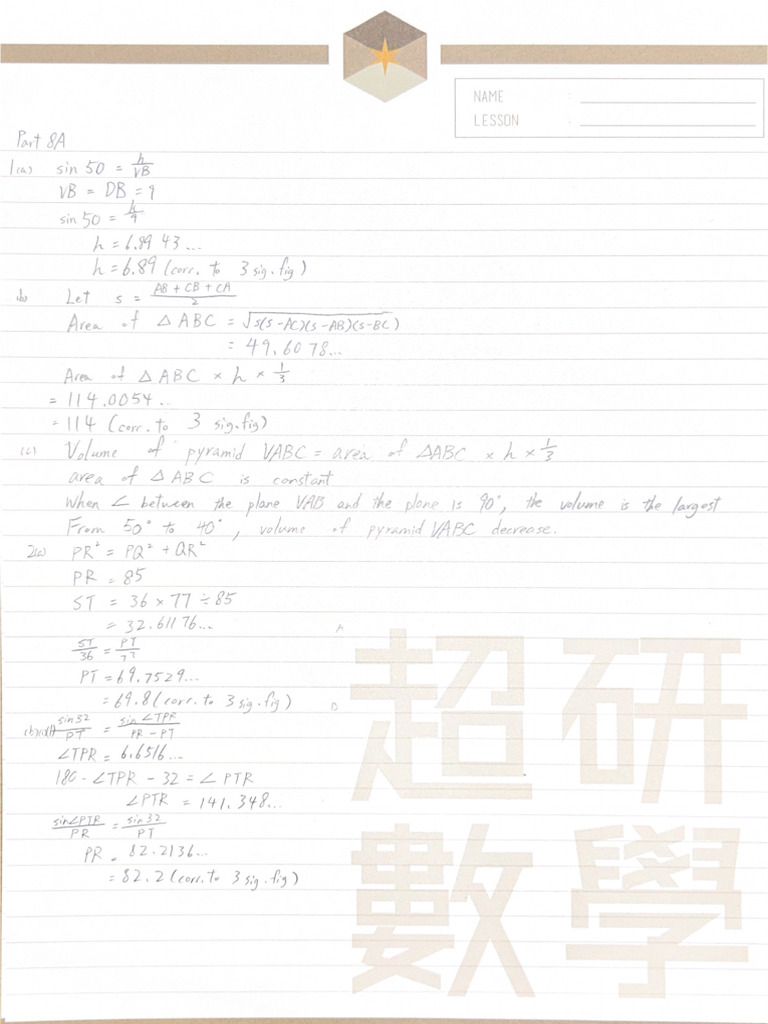 NAME :
LESSON :
Part 8A
1(a) sin 50 = h/VB
VB = DB = 9
sin 50 = h/9
h = 6.8943...
h = 6.89 (corr. to 3 sig. fig)
(b) Let s = (AB + CB + CA)/2
Area of △ABC = √s(s-AC)(s-AB)(s-BC)
= 49.6078...
Area of △ABC × h × 1/3
= 114.0054...
= 114 (corr. to 3 sig.fig)
(c) Volume of pyramid VABC = area of △ABC × h × 1/3
area of △ABC is constant
When ∠ between the plane VAB and the plane is 90°, the volume is the largest
From 50° to 40°, volume of pyramid VABC decrease.
2(a) PR² = PQ² + QR²
PR = 85
ST = 36 × 77 ÷ 85
= 32.61176...
ST/36 = PT/77
PT = 69.7529...
= 69.8 (corr. to 3 sig. fig)
sin32/PT = sin∠TPR/(PR - PT)
∠TPR = 6.6516...
180 - ∠TPR - 32 = ∠PTR
∠PTR = 141.348...
sin∠PTR/PR = sin32/PT
PR = 82.2136...
= 82.2 (corr. to 3 sig. fig)
超研
數學